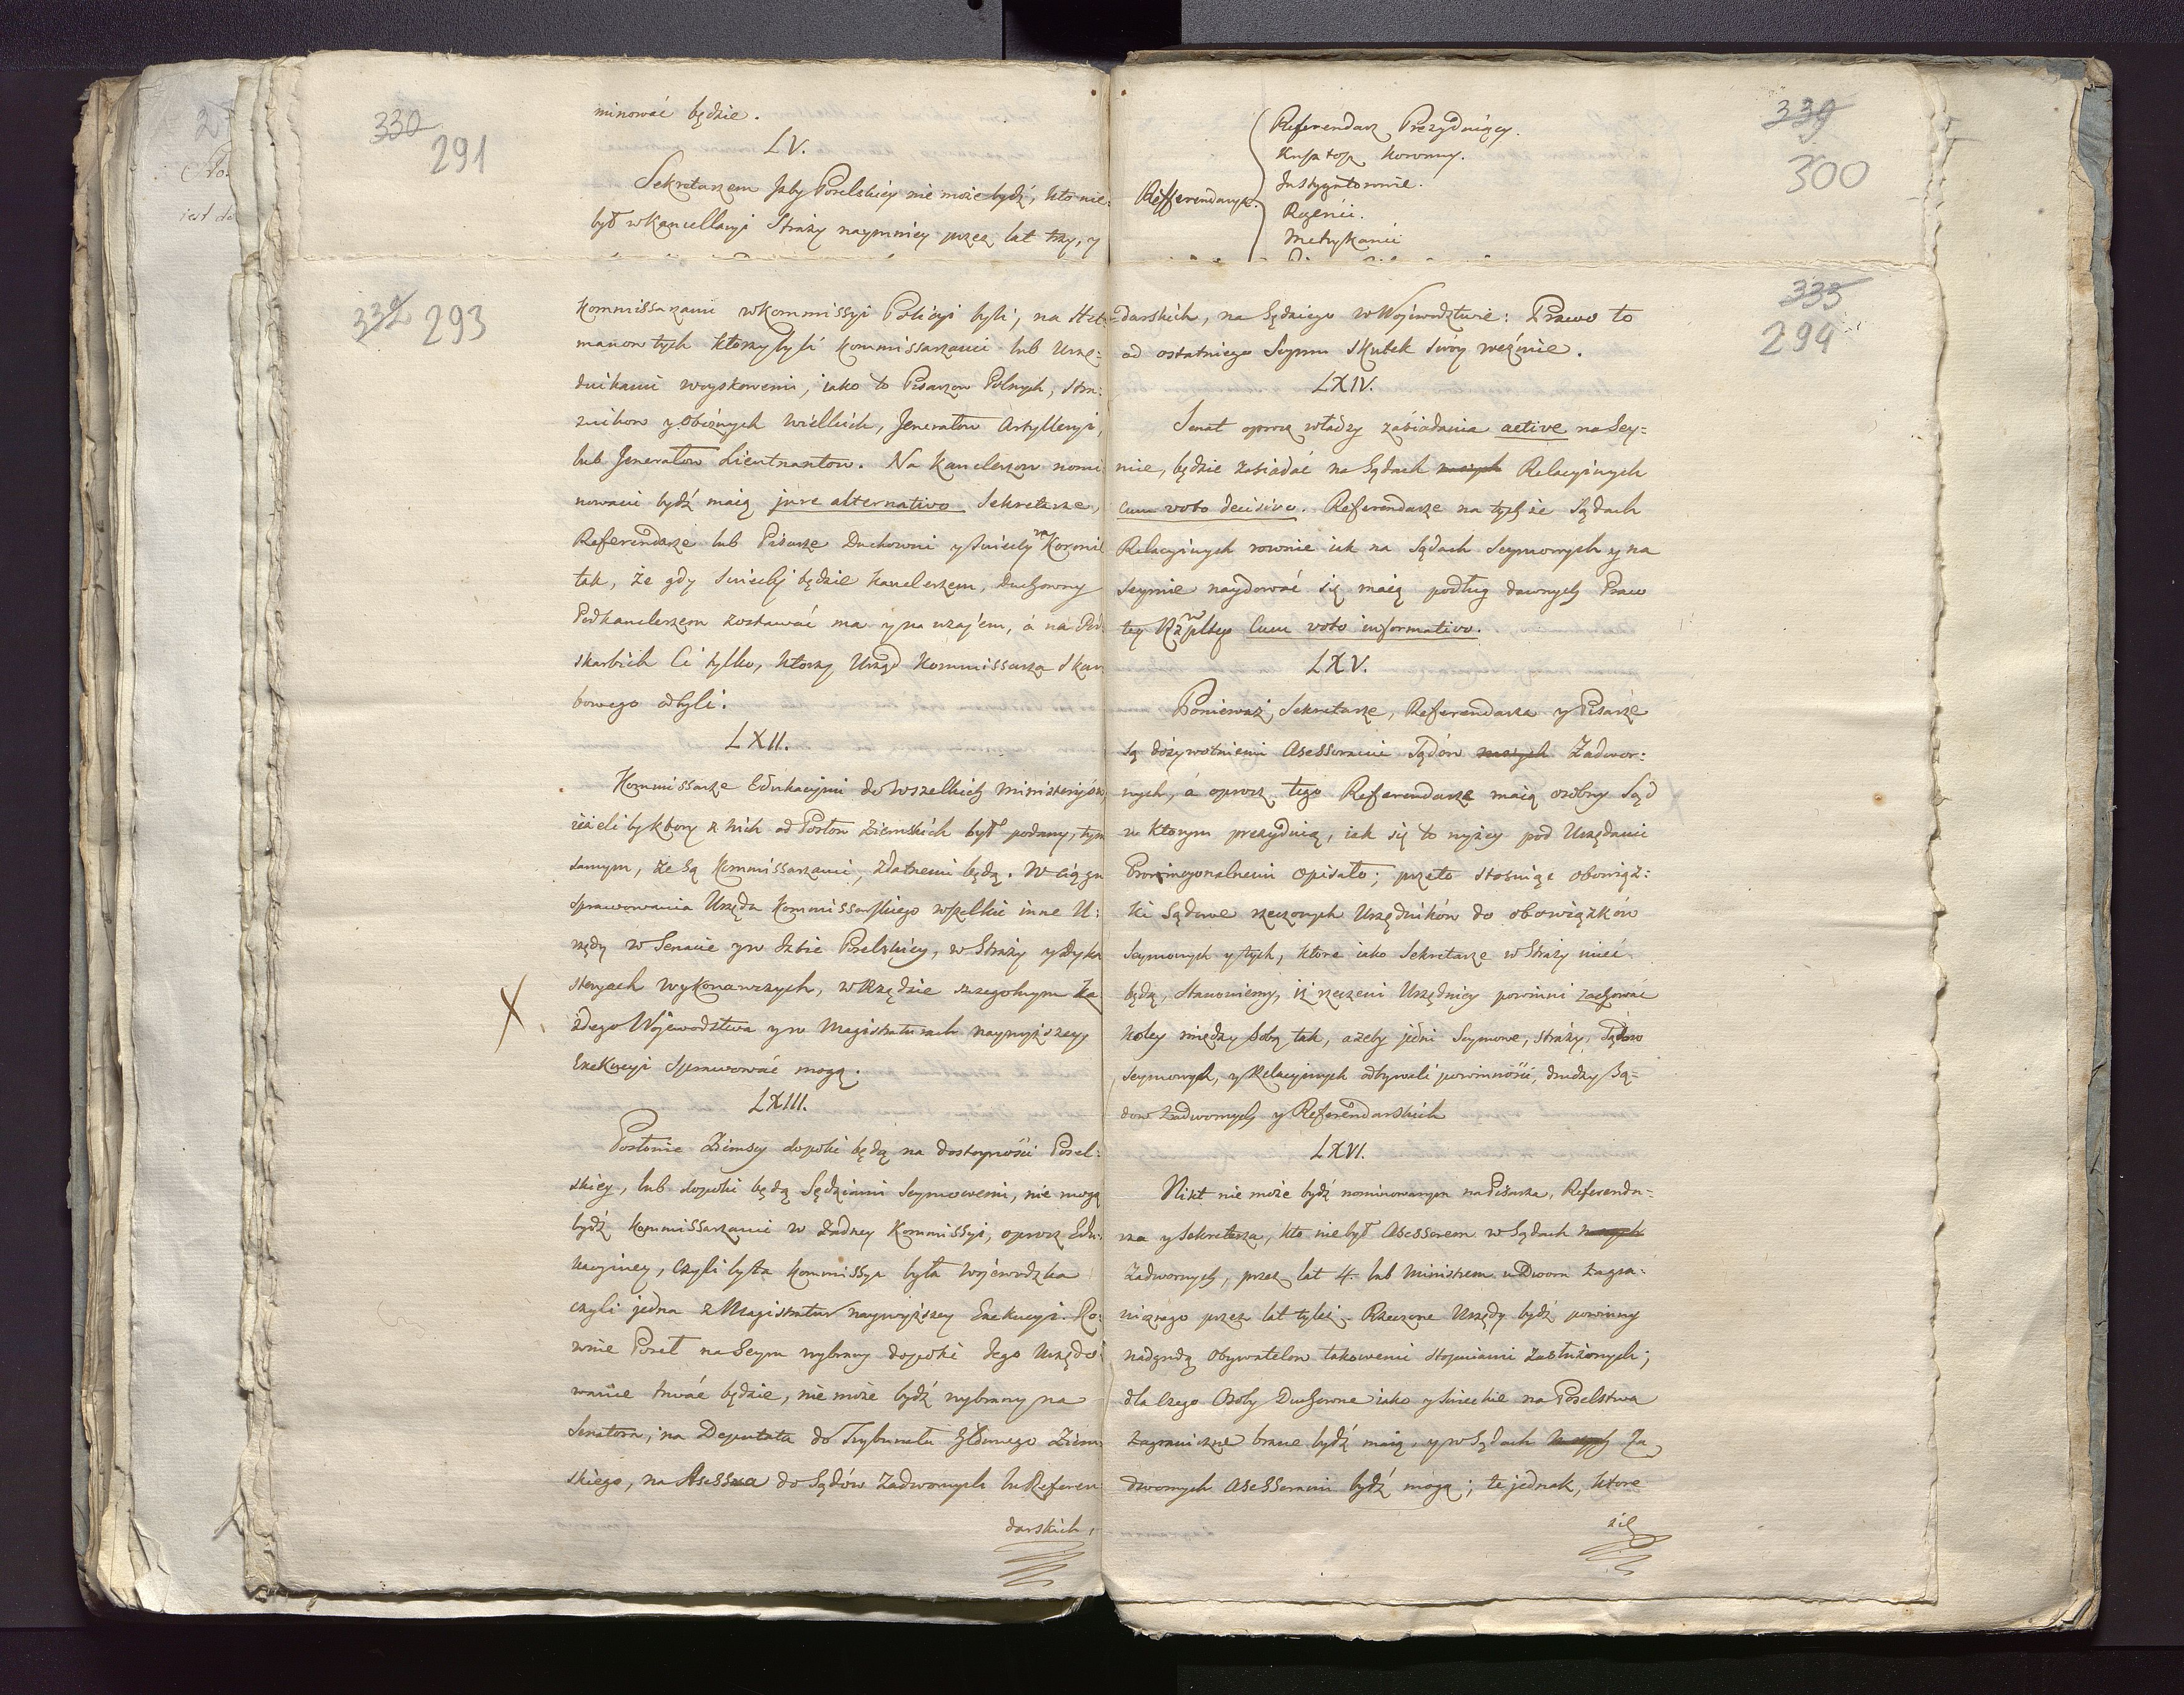 330
291
minować będzie.
LV.
Sekretarzem Jzby Poselskiey nie może bydź, kto nie:
był w Kancellaryi Straży naymniey przez lat trzy, y
332 293
Kommissarzami w Kommissyi Policyi byli, na Het:
manow tych ktorzy byli Kommissarzami lub Urzę:
dnikami woyskowemi, iako to Pisarzow Polnych, Stra:
znikow y Oboznych Wielkich, Jenerałow Artylleryi,
lub Jenerałow Lieutnantow. Na Kanclerzow nomi:
nowani bydź maią jure alternativo Sekretarze,
Referendarze lub Pisarze Duchowni y Swieccy w Koronie
tak, że gdy Swiecki będzie Kanclerzem, Duchowny
Podkanclerzem zostawać ma y na wzajem, á na Pod:
skarbich Ci tylko, ktorzy Urząd Kommissarza Skar:
bowego odbyli.
LXII.
Kommissarze Edukacyini do wszelkich Ministeryów,
ieżeli by ktory z nich od Posłow Ziemskich był podany, tym
samym, że są Kommissarzami, zdatnemi będą. W ciągu
sprawowania Urzędu Kommissarskiego wszelkie inne U:
rzędy w Senacie y w Izbie Poselskiey, w Straży y Dyka
steryach wykonawczych, w Rządzie szczegolnym Ka
żdego Wojewodztwa y w Magistraturach naywyższey
Exekucyi sprawować mogą.
X
LXIII.
Posłowie Ziemscy dopoki będą na dostoyności Posel:
skiey, lub dopoki będą Sędziami Seymowemi, nie mogą
bydź Kommissarzami w żadney Kommissyi, oprocz Edu:
kacyiney, czyli by ta Kommissya była Wojewodzka
czyli jedna z Magistratur naywyższey Exekucyi. Ro:
wnie Poseł na Seym wybrany dopoki Jego Urzędo:
wanie trwać będzie, nie może bydź wybrany na
Senatora, na Deputata do Trybunału Głównego Ziem
skiego, na Asessora do Sądów Zadwornych lub Referen
darskich,
339
300
Refferendarya.
Referendarz Prezyduiący.
Kustosz Koronny.
Instygatorowie.
Regenci.
Metrykanci
333
294
darskich, na Sędziego w Wojewodztwie: Prawo to
od ostatniego Seymu skutek swoy weźmie.
LXIV.
Senat oprocz władzy zasiadania active na Sey:
mie, będzie zasiadać na Sądach naszych Relacyinych
cum voto decisivo. Referendarze na tychże Sądach
Relacyinych rownie iak na Sądach Seymowych y na
Seymie naydować się maią podług dawnych Praw
tey Rzpltey cum voto informativo.
LXV.
Ponieważ, Sekretarze, Referendarze y Pisarze
są dożywotniemi Asessorami Sądów naszych Zadwor:
nych, á oprocz tego Referendarze maią osobny Sąd
w ktorym prezyduią, iak się to wyżey pod Urzędami
Prowincyonalnemi opisało; przeto stosuiąc obowiąz:
ki Sądowe rzeczonych Urzędników do obowiązków
Seymowych y tych, ktore iako Sekretarze w Straży mieć
będą, stanowiemy, iż rzeczeni Urzędnicy powinni zachować
koley między sobą tak, ażeby jedni Seymowe, Straży, Sądow
Seymowych, y Relacyinych odbywali powinności, drudzy Są:
dow Zadwornych y Referendarskich
LXVI.
Nikt nie może bydź nominowanym na Pisarza, Referenda:
rza y Sekretarza, kto nie był Asessorem w Sądach naszych
Zadwornych, przez lat 4. lub Ministrem u Dworu zagra:
nicznego przez lat tyleż. Rzeczone Urzędy bydź powinny
nadgrodą Obywatelow takowemi stopniami zasłużonych;
dla czego Osoby Duchowne iako y Swieckie na Poselstwa
zagraniczne brane bydź maią, y w Sądach naszych Za
dwornych Asessorami bydź mogą; te jednak, ktore
się